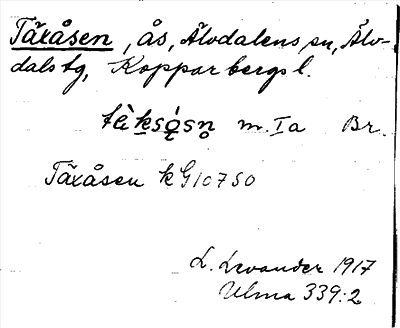 Täxåsen, ås, Älvdalens sn, Älv-
dals tg, Kopparbergs l.
m. Ia Br.
Täxåsen k G10750
L. Levander 1917
Ulma 339:2